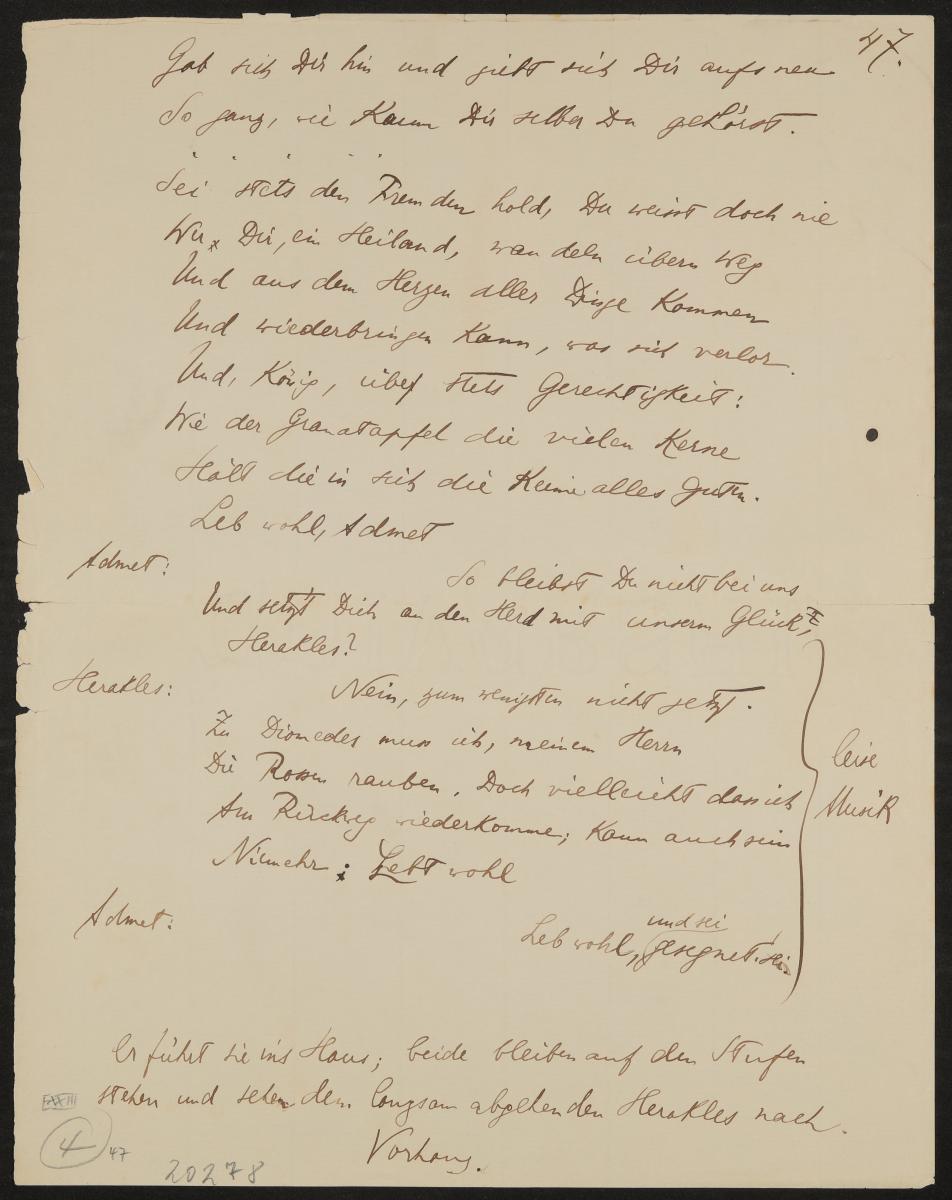 47.
Gab sich Dir hin und giebt sich Dir aufs neu
So ganz, wie Kaum Dir selber Du gehörst.
. . . . .
Sei stets den Fremden hold, Du weisst doch nie
Wer Dir, ein Heiland, wandeln übern Weg
Und aus dem Herzen aller Dinge Kommen
Und wiederbringen Kann, was sich verlor.
Und, König, übe stets Gerechtigkeit:
Wie der Granatapfel die vielen Kerne
Hält die in sich die Keime alles Guten.
Leb wohl, Admet
Admet: So bleibst Du nicht bei uns
Und setzt Dich an den Herd mit unserm Glück,
Herakles?
Herakles: Nein, zum wenigsten nicht jetzt.
Zu Diomedes muss ich, meinem Herrn
Die Rossen rauben. Doch vielleicht dass ich
Am Rückweg wiederkomme; Kann auch sein
Niemehr; Lebt wohl
leise
Musik
Admet: Leb wohl, und sei gesegnet! sei.
Er führt sie in's Haus; beide bleiben auf den Stufen
stehen und sehen dem langsam abgehenden Herakles nach.
Vorhang.
XXIII
4
47
20278